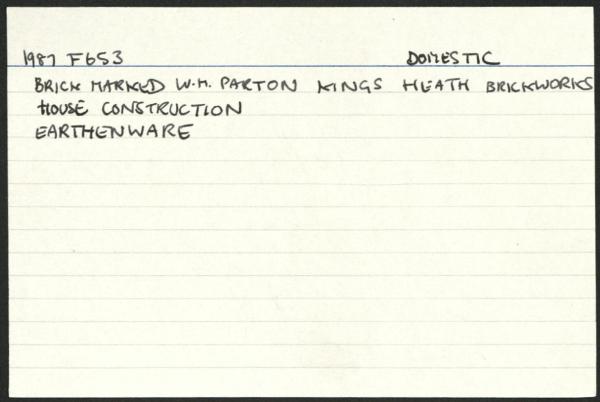 1987 F653 DOMESTIC
BRICK MARKED W.H. PARTON KINGS HEATH BRICKWORKS
HOUSE CONSTRUCTION
EARTHENWARE